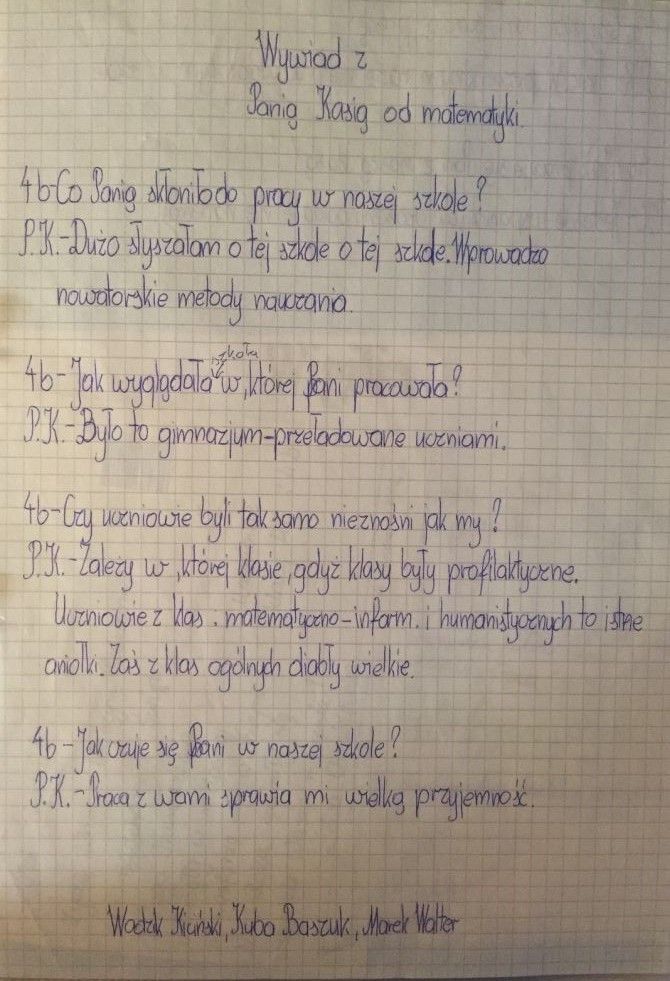 Wywiad z
Panią Kasią od matematyki.
4b-Co Panią skłoniło do pracy w naszej szkole?
P.K.-Dużo słyszałam o tej szkole o tej szkole. Wprowadza
nowatorskie metody nauczania.
szkoła
4b-Jak wyglądała w, której Pani pracowała?
P.K.-Było to gimnazjum-przeładowane uczniami.
4b-Czy uczniowie byli tak samo nieznośni jak my?
P.K.-Zależy w, której klasie, gdyż klasy były profilaktyczne.
Uczniowie z klas . matematyczno-inform. i humanistycznych to istne
aniołki. Zaś z klas ogólnych diabły wielkie.
4b-Jak czuje się Pani w naszej szkole?
P.K.-Praca z wami sprawia mi wielką przyjemność.
Kiciński, Kuba Baszuk, Marek Walter